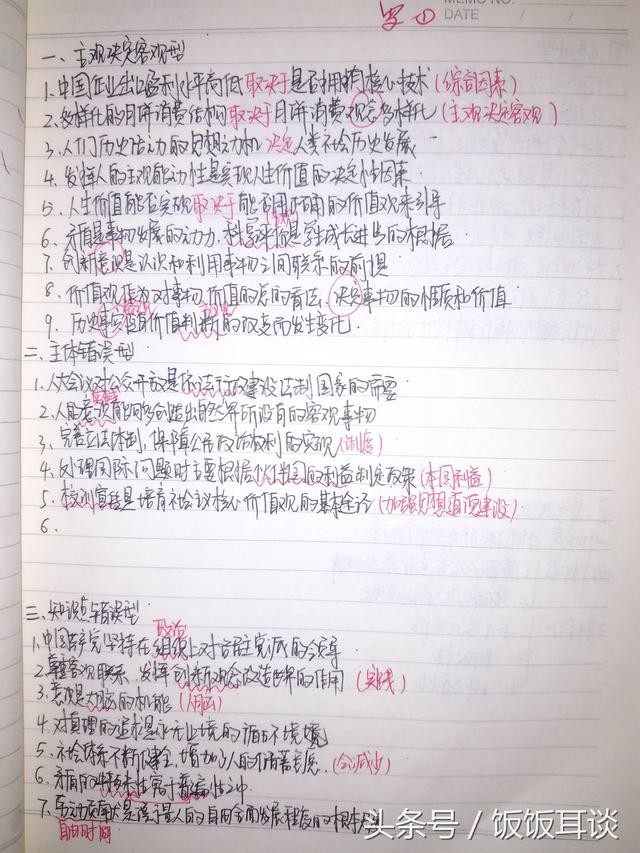 MEMO NO.
DATE / /
一、主观决定客观型
1. 中国企业出口盈利水平高低取决于是否拥有核心技术(综合因素)
2. 多样化的月饼消费结构取决于月饼消费观念多样化(主观决定客观)
3. 人们历史活动的思想动机决定人类社会历史发展
4. 发挥人的主观能动性是实现人生价值的决定性因素
5. 人生价值能否实现取决于能否用正确的价值观来引导
6. 矛盾是事物发展的动力,是学生成长进步的根据
7. 创新意识是认识和利用事物之间联系的前提
8. 价值观作为对事物价值的总的看法,决定事物的性质和价值
9. 历史事实随着价值判断的改变而发生变化
二、主体错误型
1. 人大会议对公众开放是依法行政建设法制国家的需要
2. 人的意识能够创造出自然界所没有的客观事物
实践
3. 完善立法体制,保障公民政治权利的实现(制度)
4. 处理国际问题时主要根据伙伴国的利益制定政策(本国利益)
5. 核心价值观的基本途径(加强思想道德建设)
6.
三、知识点错误型
政治
1. 中国共产党坚持在组织上对各民主党派的领导
2. 客观联系,发挥创新观念改造世界的作用(实践)
3. 意识是大脑的机能(人脑)
4. 对真理的追求是永无止境的循环
5. 社会体系不断健全,增加了人的后顾之忧(会减少)
6. 矛盾的特殊性寓于普遍性之中
7. 劳动效率是衡量人的自由全面发展程度的根本尺度
自由时间
头条号 / 饭饭耳谈